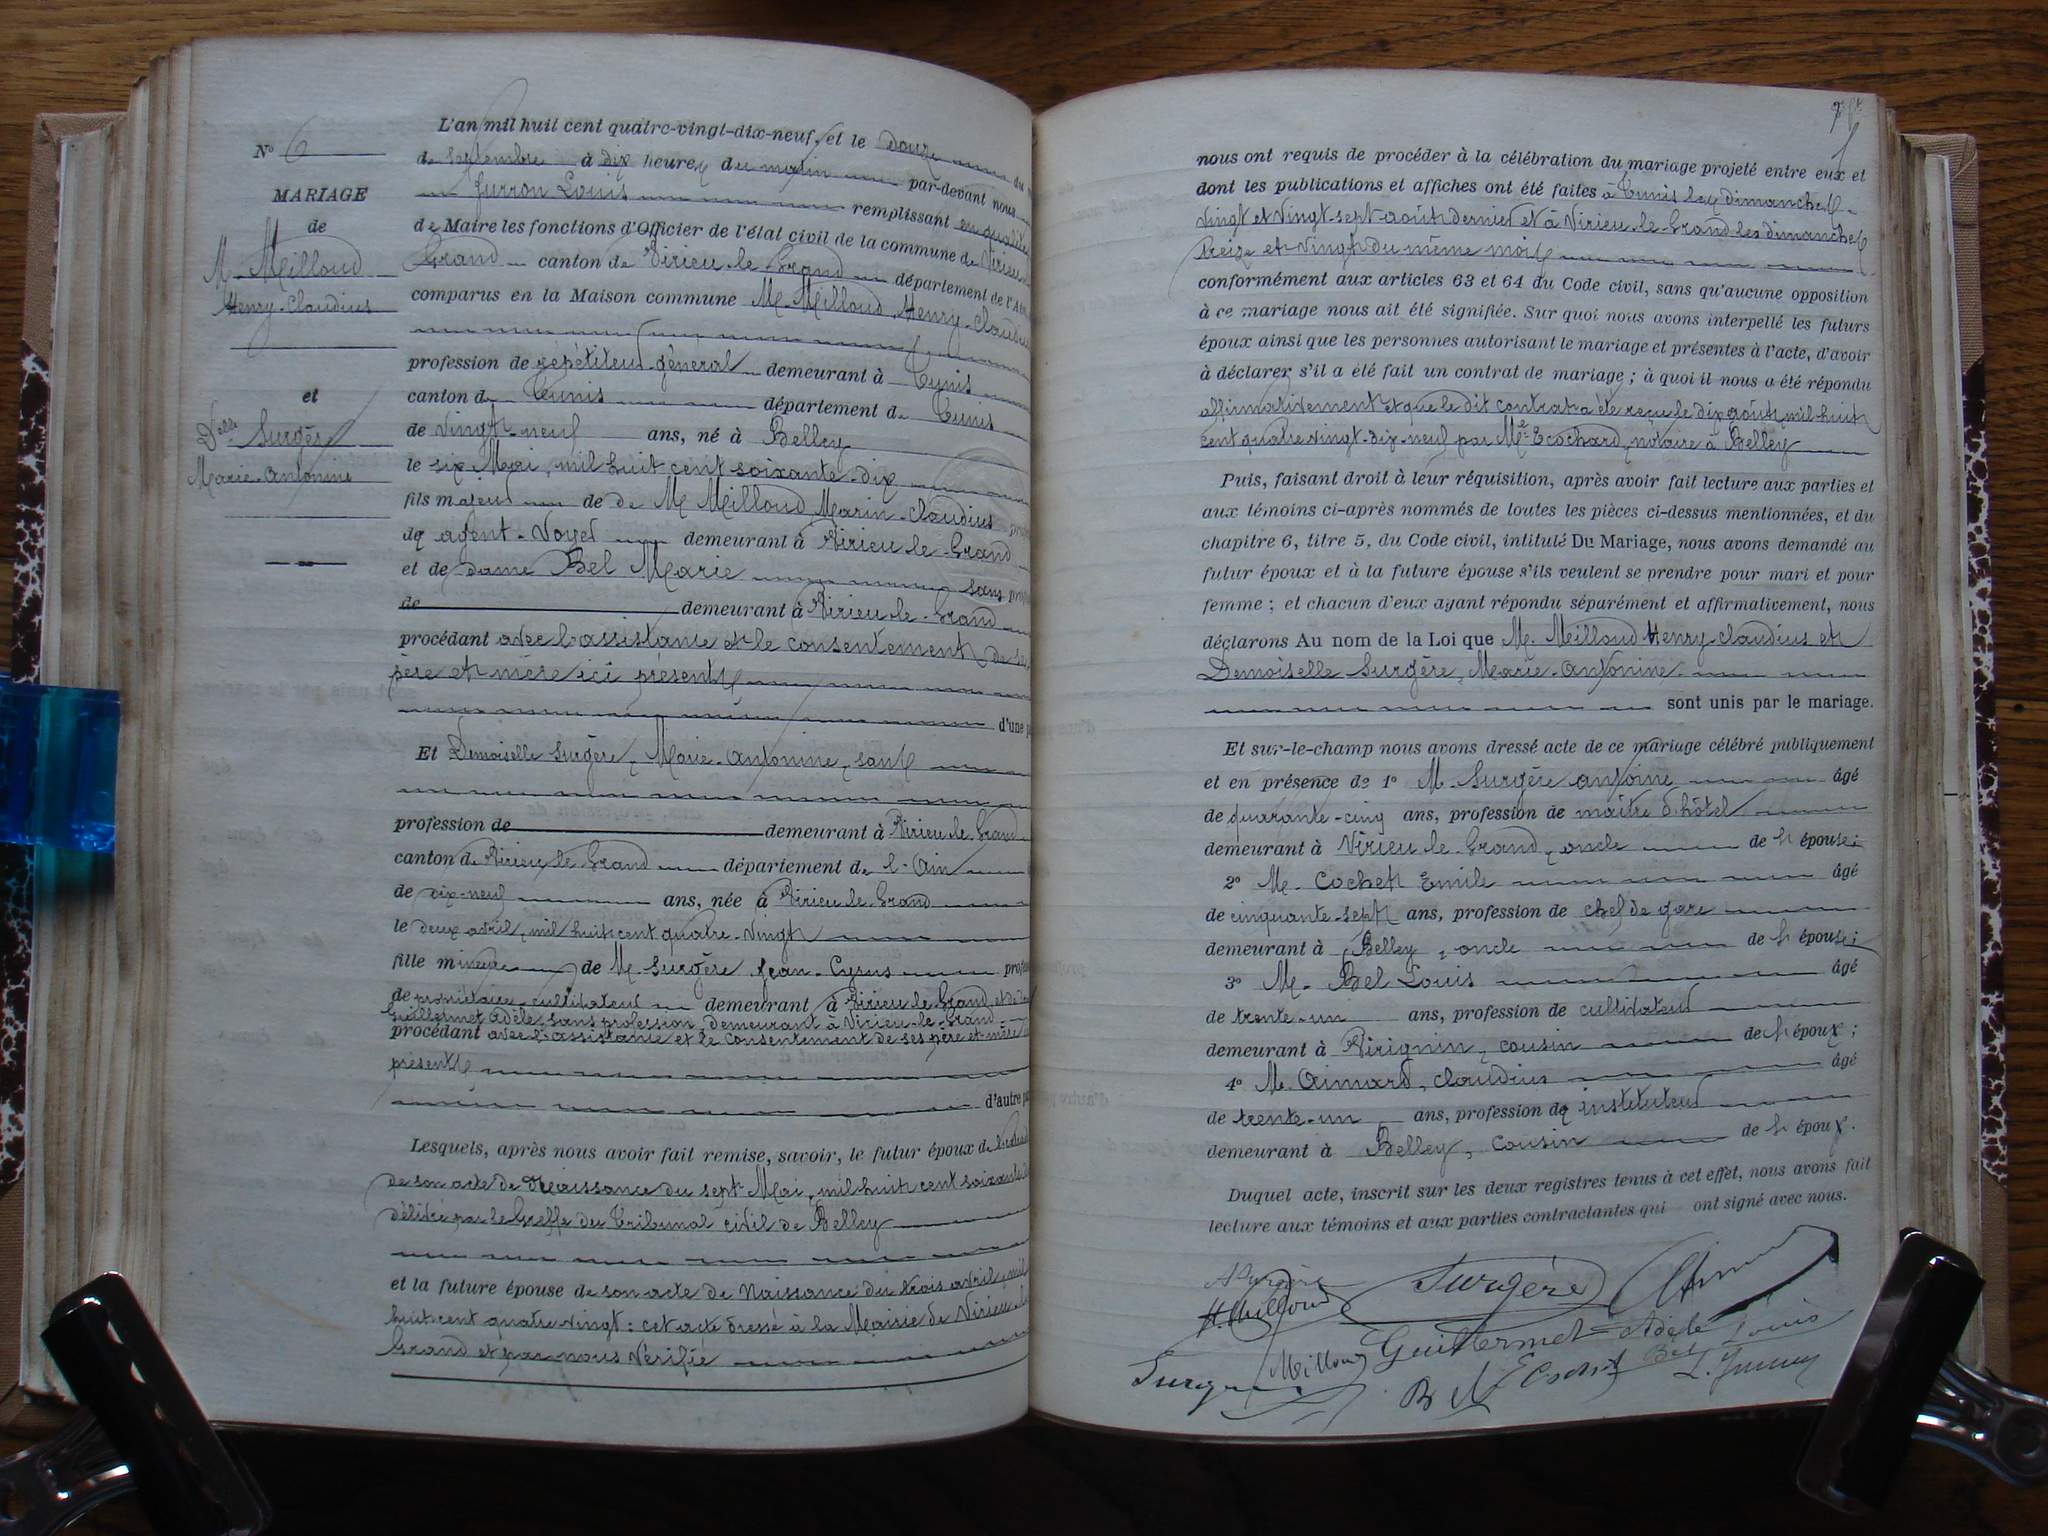 N° 6
MARIAGE
de
M. Milloud
Henry-Claudius
et
Delle Surgère
Marie-Antonine
L'an mil huit cent quatre-vingt-dix-neuf, et le douze du
de Septembre à dix heures du matin par-devant nous
Jurron Louis remplissant en qualité
de Maire les fonctions d'Officier de l'état civil de la commune de Virieu
Grand canton de Virieu-le-Grand département de l'Ain
comparus en la Maison commune M. Milloud, Henry-Claudius
profession de répétiteur général demeurant à Tunis
canton de Tunis département de Tunis
de vingt-neuf ans, né à Belley
le six Mai, mil huit cent soixante-dix
fils majeur de de M Milloud Marin-Claudius
de agent-Voyer demeurant à Virieu-le-Grand
et de dame Bel Marie sans
de demeurant à Virieu-le-Grand
procédant avec l'assistance et le consentement de ses
père et mère ici présents
d'une
Et Demoiselle Surgère, Marie-Antonine, sans
profession de demeurant à Virieu-le-Grand
canton de Virieu-le-Grand département de l'Ain
de dix-neuf ans, née à Virieu-le-Grand
le deux avril, mil huit cent quatre-vingt
fille mineure de M. Surgère Jean-Cyrus
de propriétaire-cultivateur demeurant à Virieu-le-Grand et de
Guillermet Adèle, sans profession, demeurant à Virieu-le-Grand
procédant avec l'assistance et le consentement de ses père et mère
présents
d'autre
Lesquels, après nous avoir fait remise, savoir, le futur époux de
de son acte de Naissance du sept Mai, mil huit cent soixante
délivré par le Greffe du Tribunal civil de Belley
et la future épouse de son acte de Naissance du trois avril, mil
huit cent quatre vingt : cet acte dressé à la Mairie de Virieu-le
Grand et par nous Vérifié
nous ont requis de procéder à la célébration du mariage projeté entre eux et
dont les publications et affiches ont été faites à Tunis les dimanches
Vingt et Vingt-sept août dernier et à Virieu-le-Grand les dimanches
treize et vingt du même mois
conformément aux articles 63 et 64 du Code civil, sans qu'aucune opposition
à ce mariage nous ait été signifiée. Sur quoi nous avons interpellé les futurs
époux ainsi que les personnes autorisant le mariage et présentes à l'acte, d'avoir
à déclarer s'il a été fait un contrat de mariage ; à quoi il nous a été répondu
affirmativement et que le dit contrat a été reçu le dix août mil huit
cent quatre vingt-dix-neuf par Me Ecochard, notaire à Belley
Puis, faisant droit à leur réquisition, après avoir fait lecture aux parties et
aux témoins ci-après nommés de toutes les pièces ci-dessus mentionnées, et du
chapitre 6, titre 5, du Code civil, intitulé Du Mariage, nous avons demandé au
futur époux et à la future épouse s'ils veulent se prendre pour mari et pour
femme ; et chacun d'eux ayant répondu séparément et affirmativement, nous
déclarons Au nom de la Loi que M. Milloud Henry-Claudius et
Demoiselle Surgère, Marie-Antonine
sont unis par le mariage.
Et sur-le-champ nous avons dressé acte de ce mariage célébré publiquement
et en présence de 1° M. Surgère Antoine âgé
de quarante-cinq ans, profession de maître d'hôtel
demeurant à Virieu-le-Grand, oncle de l'épouse ;
2° M. Cochet Emile âgé
de cinquante-sept ans, profession de chef de gare
demeurant à Belley, oncle de l'épouse ;
3° M. Bel Louis âgé
de trente-un ans, profession de cultivateur
demeurant à Virignin, cousin de l'époux ;
4° M. Aimard, Claudius âgé
de trente-un ans, profession de instituteur
demeurant à Belley, cousin de l'époux.
Duquel acte, inscrit sur les deux registres tenus à cet effet, nous avons fait
lecture aux témoins et aux parties contractantes qui ont signé avec nous.
A Surgère Surgère
H. Milloud
Milloud Guillermet Adèle Bel Louis